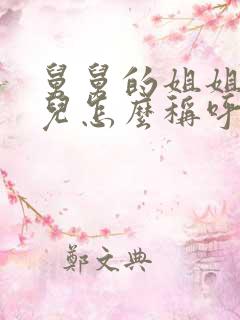 舅舅的姐姐
兒怎麼稱呼
鄭文典